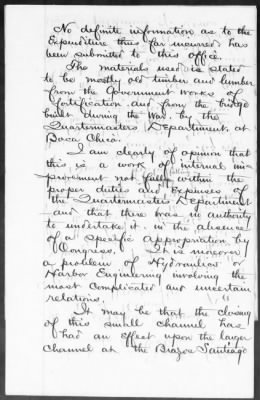 No definite information as to the
Expenditure thus far incurred, has
been submitted to this office.
The materials used is stated
to be mostly old timber and lumber
from the Government works of
Fortification and from the bridge
built during the War, by the
Quartermasters Department, at
Boca Chica.
I am clearly of opinion that
this is a work of internal im-
provement not falling within the
proper duties and expenses of
the Quartermasters Department
and that there was no authority
to undertake it, in the absence
of a Specific Appropriation by
Congress. It is moreover
a problem of Hydraulics or
Harbor Engineering involving the
most complicated and uncertain
relations.
It may be that the closing
of this small channel has
had an Effect upon the larger
Channel at the Brazos Santiago